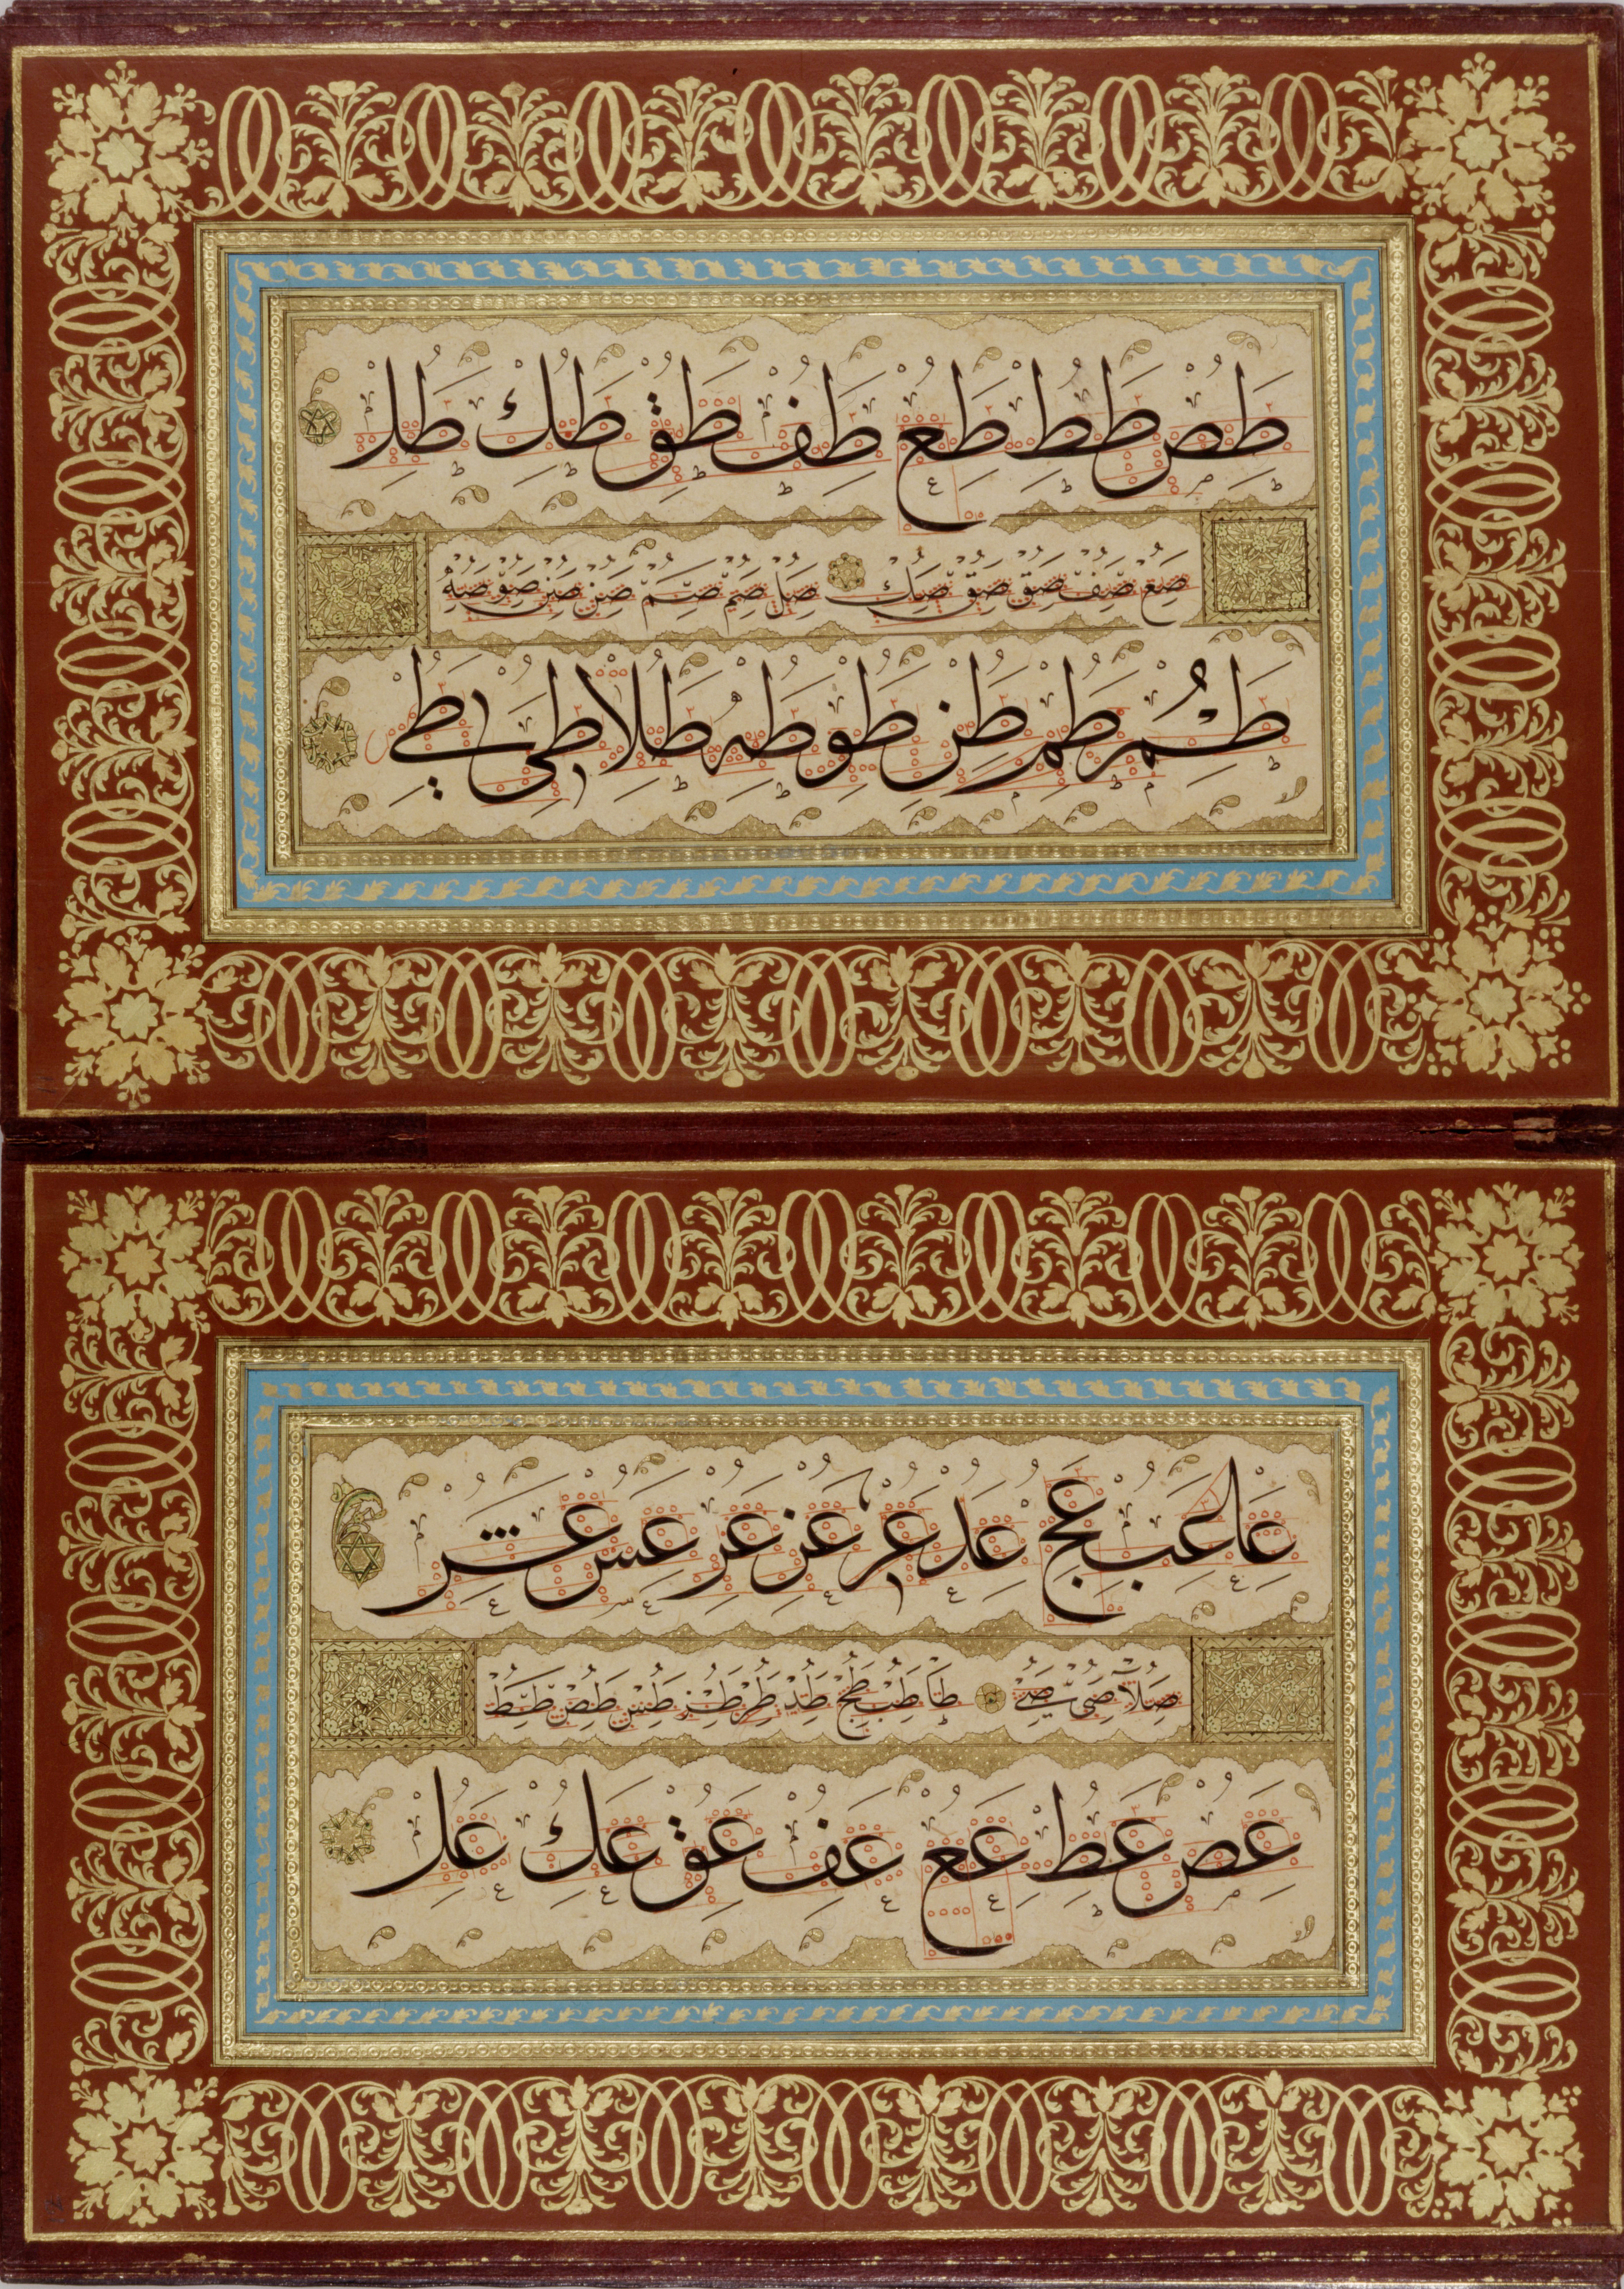 طص طط طع طف طق طك طل
صع صف صق صق صك صل صم صم صن صن صو صه
طم طم طن طو طه طلا طى طي
عا عب عج عد عر عز عر عس عش
صلا صى صي طا طب طح طد طر طز طس طص طط
عص عط عع عف عق عك عل